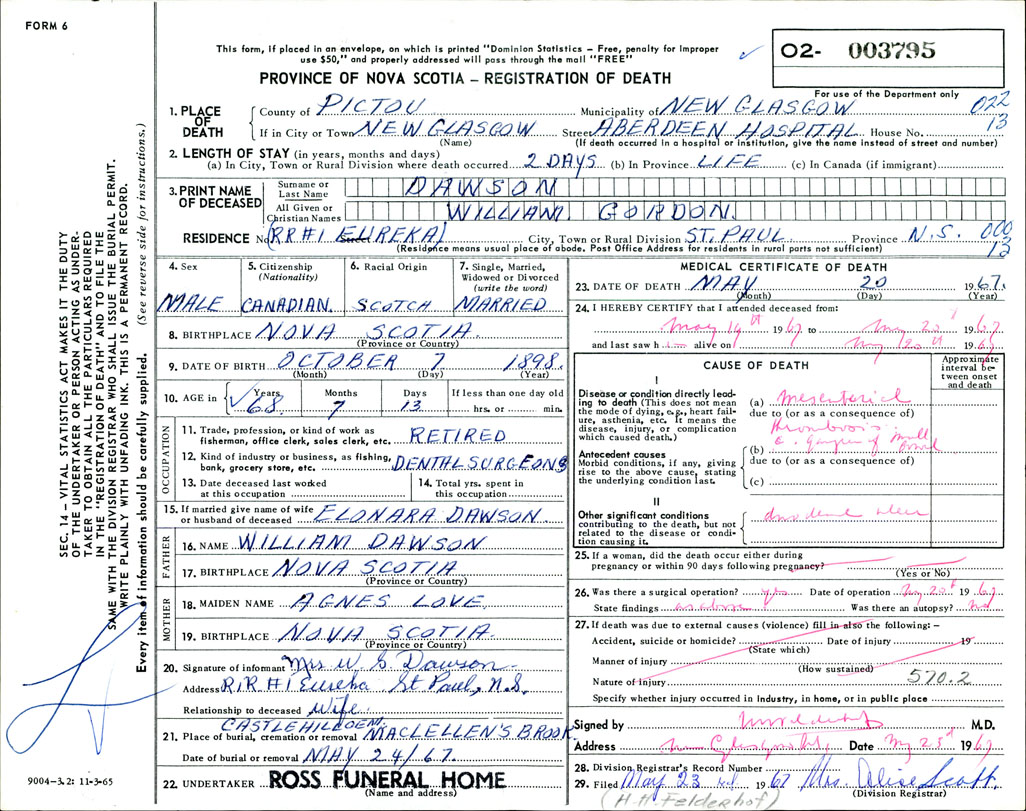 FORM 6
This form, if placed in an envelope, on which is printed "Dominion Statistics – Free, penalty for improper
use $50," and properly addressed will pass through the mail "FREE"
PROVINCE OF NOVA SCOTIA – REGISTRATION OF DEATH
02- 003795
For use of the Department only
022
13
1. PLACE OF DEATH
County of PICTOU Municipality of NEW GLASGOW
If in City or Town NEW GLASGOW Street ABERDEEN HOSPITAL House No.
(Name) (If death occurred in a hospital or institution, give the name instead of street and number)
2. LENGTH OF STAY (in years, months and days)
(a) In City, Town or Rural Division where death occurred 2 DAYS (b) In Province LIFE (c) In Canada (if immigrant)
3. PRINT NAME OF DECEASED
Surname or Last Name DAWSON
All Given or Christian Names WILLIAM GORDON.
RESIDENCE No. (RR#1 EUREKA) City, Town or Rural Division ST. PAUL Province N.S. 000
13
(Residence means usual place of abode. Post Office Address for residents in rural parts not sufficient)
4. Sex MALE
5. Citizenship (Nationality) CANADIAN.
6. Racial Origin SCOTCH
7. Single, Married, Widowed or Divorced (write the word) MARRIED
8. BIRTHPLACE NOVA SCOTIA.
(Province or Country)
9. DATE OF BIRTH OCTOBER 7 1898.
(Month) (Day) (Year)
10. AGE in Years 68. Months 7 Days 13 If less than one day old hrs. or min.
OCCUPATION
11. Trade, profession, or kind of work as fisherman, office clerk, sales clerk, etc. RETIRED
12. Kind of industry or business, as fishing, bank, grocery store, etc. DENTAL SURGEONS
13. Date deceased last worked at this occupation
14. Total yrs. spent in this occupation
15. If married give name of wife or husband of deceased ELONARA DAWSON
FATHER
16. NAME WILLIAM DAWSON
17. BIRTHPLACE NOVA SCOTIA
(Province or Country)
MOTHER
18. MAIDEN NAME AGNES LOVE.
19. BIRTHPLACE NOVA SCOTIA.
(Province or Country)
20. Signature of informant Mrs W G Dawson
Address R.R #1 Eureka St Paul, N.S.
Relationship to deceased Wife.
21. Place of burial, cremation or removal MACLELLEN'S BROOK.
Date of burial or removal MAY 24/67.
22. UNDERTAKER ROSS FUNERAL HOME
(Name and address)
MEDICAL CERTIFICATE OF DEATH
23. DATE OF DEATH MAY 20 1967.
(Month) (Day) (Year)
24. I HEREBY CERTIFY that I attended deceased from:
May 19th 1967 to May 20th 1967
and last saw him alive on May 20th 1967
CAUSE OF DEATH
Approximate interval between onset and death
I
Disease or condition directly leading to death (This does not mean the mode of dying, e.g., heart failure, asthenia, etc. It means the disease, injury, or complication which caused death.)
(a) mesenterial
due to (or as a consequence of)
thrombosis
(b) c. gangrene of small bowel
Antecedent causes
Morbid conditions, if any, giving rise to the above cause, stating the underlying condition last.
due to (or as a consequence of)
(c)
II
Other significant conditions contributing to the death, but not related to the disease or condition causing it.
duodenal ulcer
25. If a woman, did the death occur either during
pregnancy or within 90 days following pregnancy?
(Yes or No)
26. Was there a surgical operation? yes Date of operation May 20th 1967
State findings as above Was there an autopsy? no
27. If death was due to external causes (violence) fill in also the following: –
Accident, suicide or homicide? Date of injury 19
(State which)
Manner of injury
(How sustained)
Nature of injury 570.2
Specify whether injury occurred in industry, in home, or in public place
Signed by M.D.
Address Date May 23d 1967
28. Division Registrar's Record Number
29. Filed May 23rd 1967 Mrs. Alice Scott.
(Division Registrar)
(H. H. Felderhof)
SEC. 14 – VITAL STATISTICS ACT MAKES IT THE DUTY
OF THE UNDERTAKER OR PERSON ACTING AS UNDER-
TAKER TO OBTAIN ALL THE PARTICULARS REQUIRED
IN THE "REGISTRATION OF DEATH" AND TO FILE THE
SAME WITH THE DIVISION REGISTRAR WHO SHALL ISSUE THE BURIAL PERMIT.
WRITE PLAINLY WITH UNFADING INK. THIS IS A PERMANENT RECORD.
Every item of information should be carefully supplied. (See reverse side for instructions.)
9004-3.2: 11-3-65